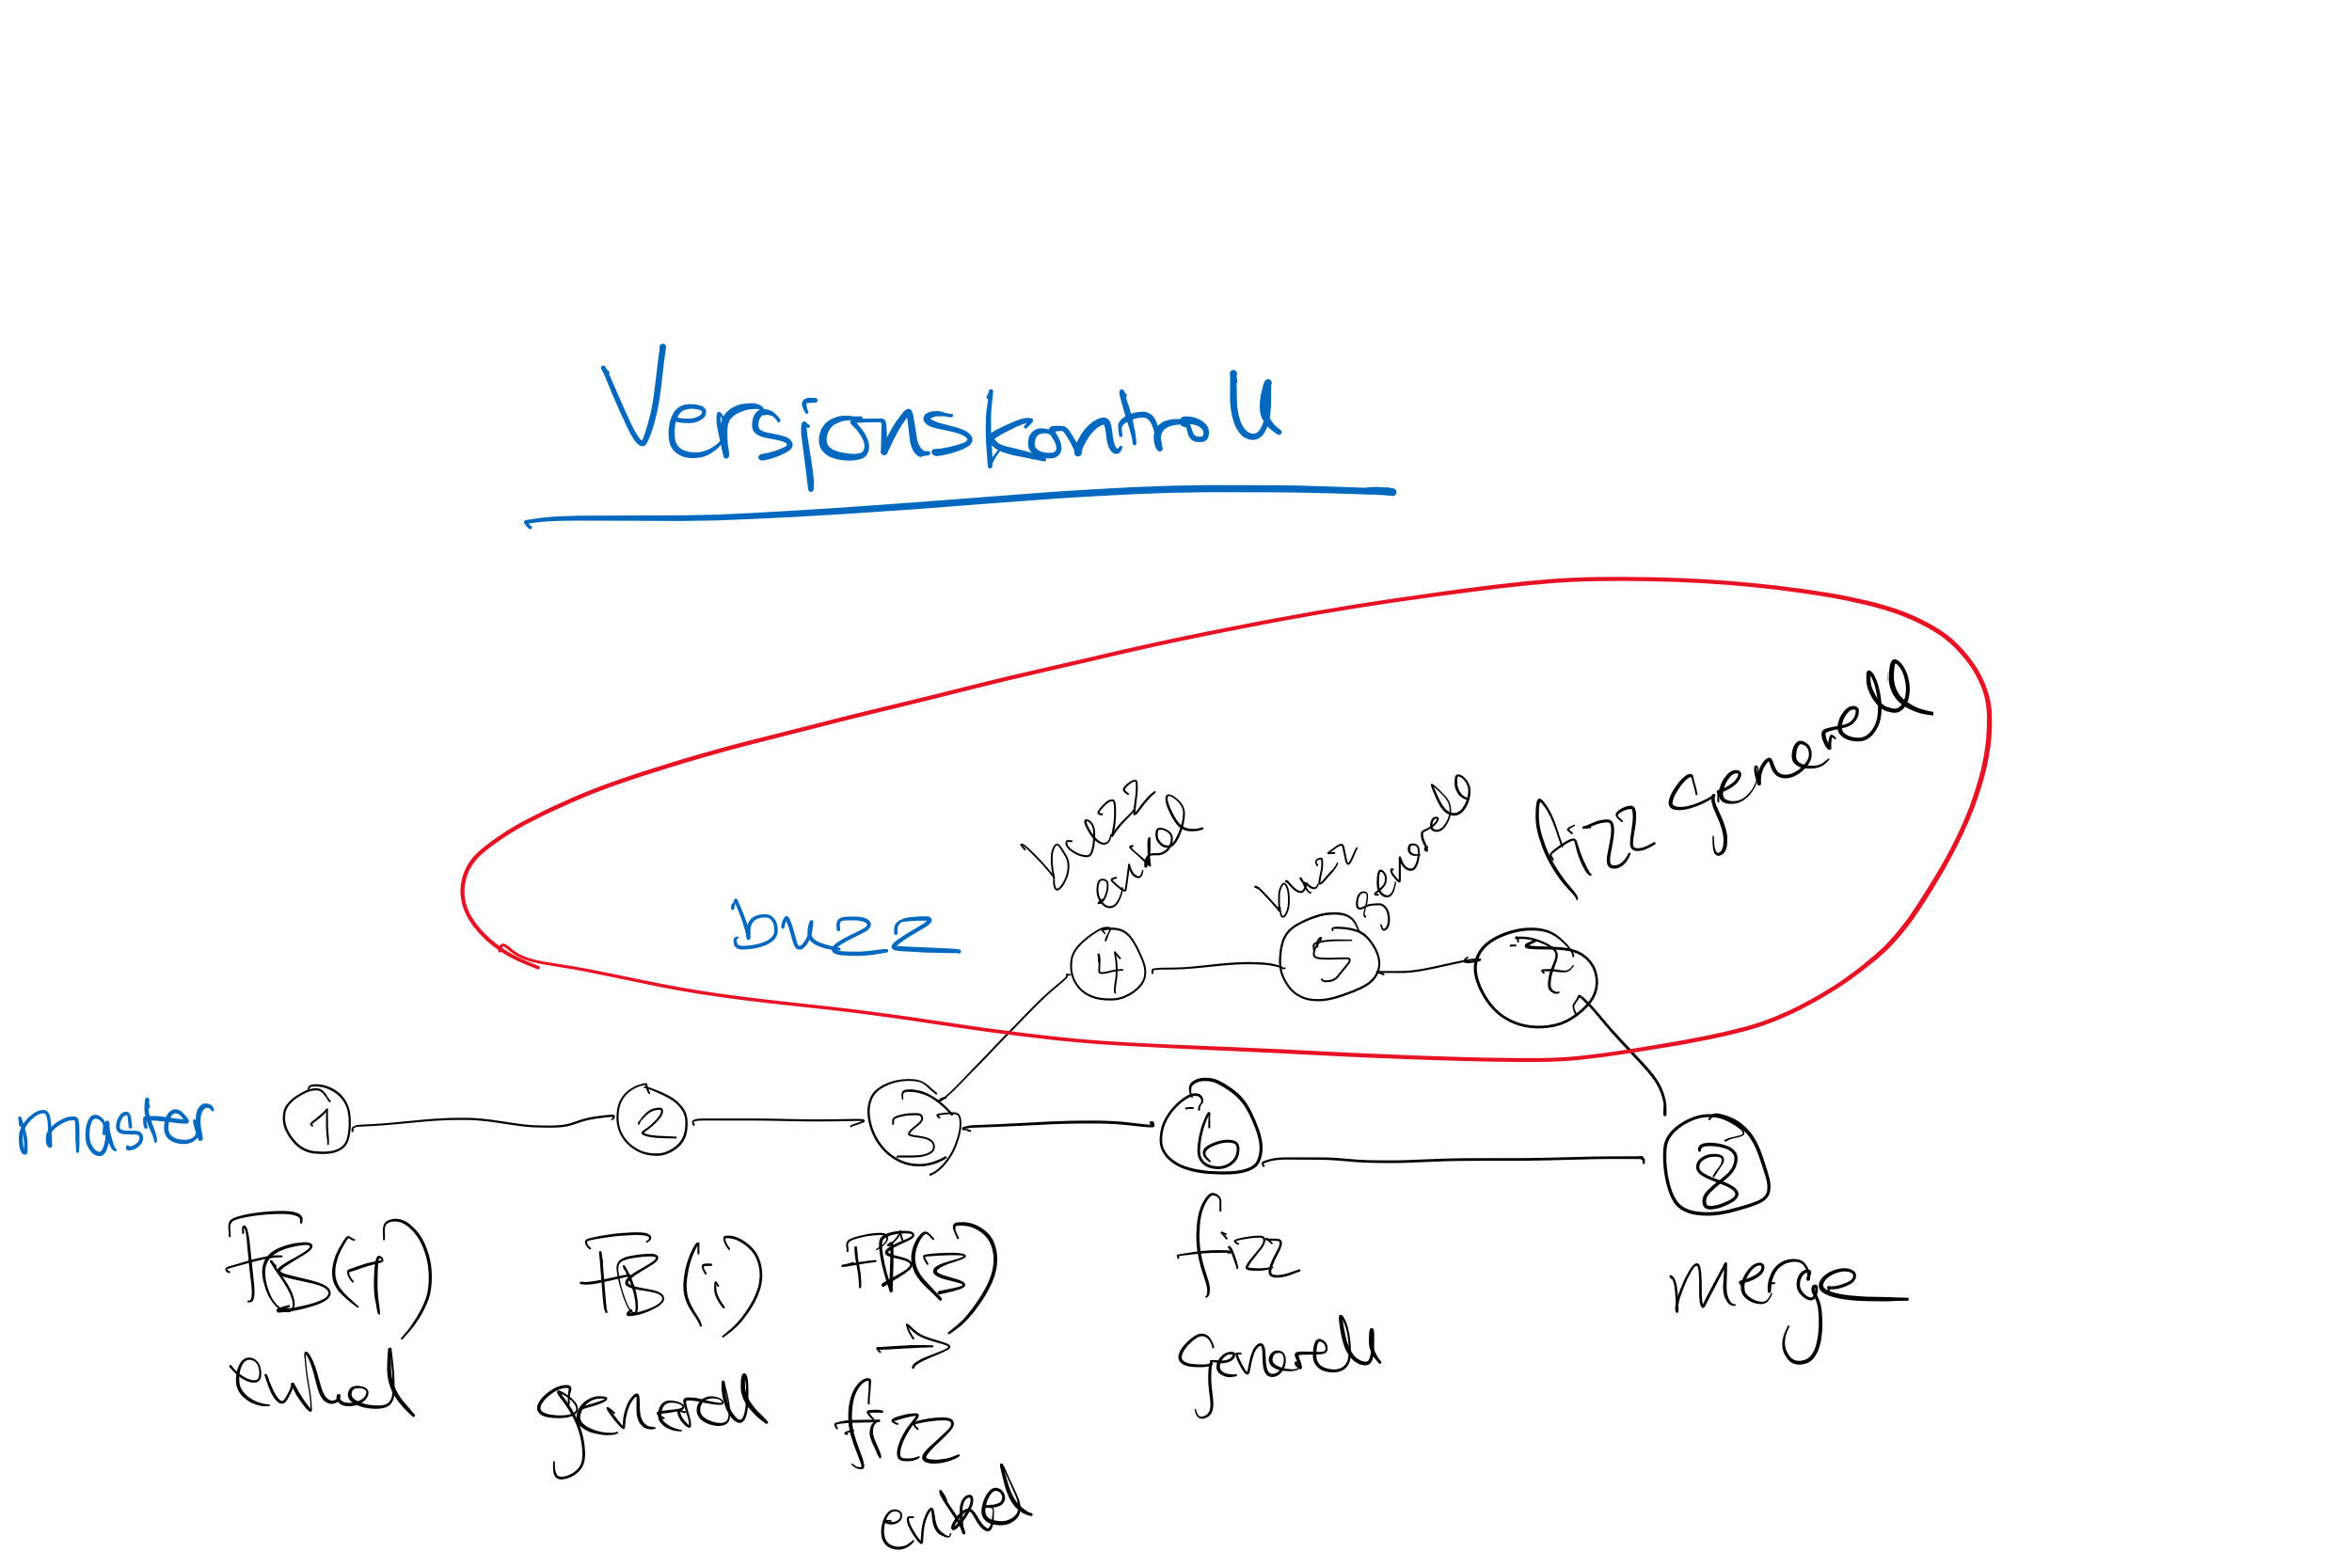 Versjonskontroll
buzz
buzz
enkel
buzz
generell
fizz generell
4
5
7
master
1
2
3
6
8
FB(1)
enkel
FB(i)
generell
FB(3)
→
fizz
enkel
fizz
generell
merge